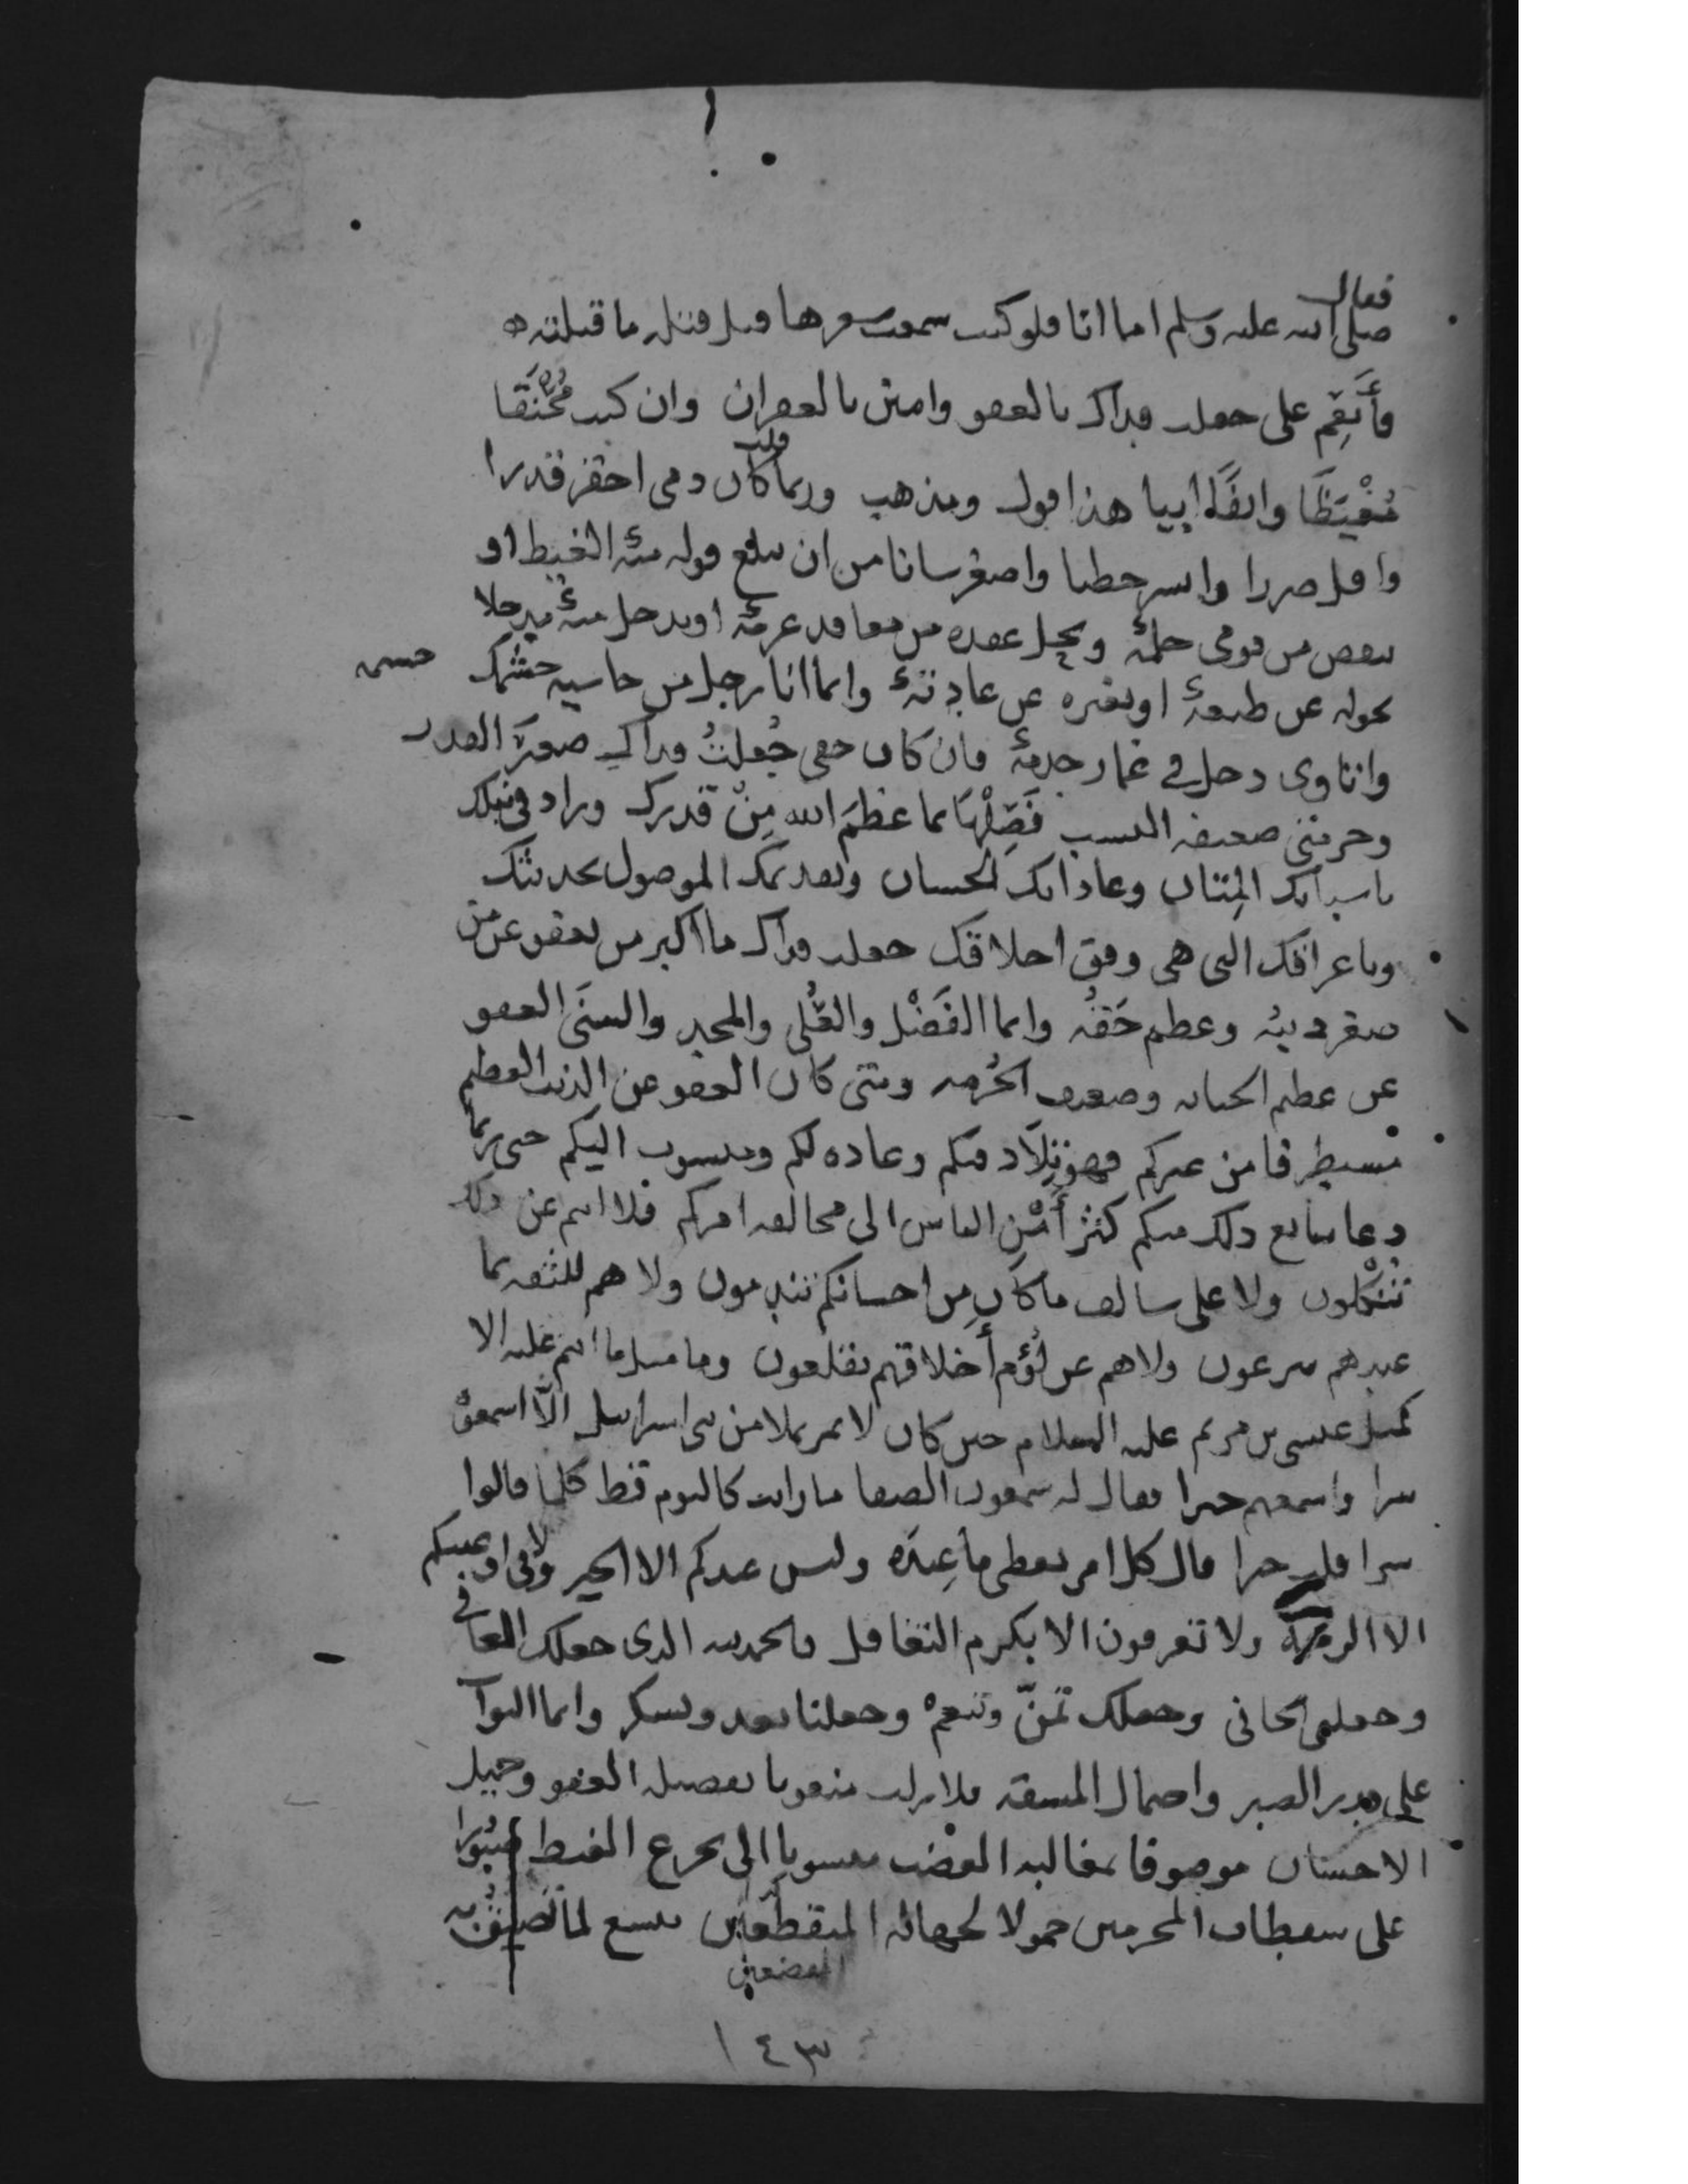 فقال
صلى الله عليه وسلم اما انا فلو كنت سمعت شعرها قبل قتله ما قتلته
فأنعم على جعلت فداك بالعفو وامتن بالغفران وان كنت مُحْنَقا
مُغْيَظا وانفا ابيا هذا قول ومذهب وربما قلت كان دمي احقر قدرا
واقل ضررا وايسر خطبا واصغر شانا من ان يبلغ قوله منه الغيظ او
ينقص من قوى حلمه ويحل عقده من معاقد عزمه او يدخل منه مدخلا
يحوله عن طبعه او يغيره عن عادته وانما انا رجل من حاشيه حشمك
حشمه
واناوى دخل في غمار خدمه فان كان حقي جُعلتُ فداك صغير القدر
وحرمتي ضعيفه السبب فَصِلْهَا بما عظم الله مِنْ قدرك وزاد في نبلك
باسبابك المِتان وعاداتك الحسان وبقديمك الموصول بحديثك
وباعراقك التي هي وفق اخلاقك جعلت فداك ما اكبر من يعفو عن من
صغر دينه وعظم حقه وانما الفَضْل والعُلى والمجد والسنَى العفو
عن عظيم الجنايه وضعيف الحُرمه ومتى كان العفو عن الذنب العظيم
مستطرفا من غيركم فهو تِلَاد فيكم وعاده لكم ومنسوب اليكم حتى ربما
دعا شايع ذلك منكم كثير أَشْرِ الناس الى مخالفه امركم فلا انتم عن ذلك
تَنْكلون ولا على سالف ما كان مِن احسانكم تندمون ولا هم للثقه بما
عندهم يسرعون ولا هم عن لُؤم أَخلاقهم يقلعون وما مثل ما انتم عليه الا
كمثل عيسى بن مريم عليه السلام حين كان لا يمر بملا من بني اسرائيل الّا اسمعوهْ
شرا واسمعهم خيرا فقال له شمعون الصفا ما رايت كاليوم قط كلما قالوا
شرا قلت خيرا قال كل امرء يعطي ما عِندَه وليس عندكم الا الخير ولا في اوعيتكم
الا الرحمة ولا تعرفون الا بكرم التغافل فالحمد لله الذي جعلك العافي
وجعلني الجاني وجعلك تمنّ وتنعمْ وجعلنا نعد ونشكر وانما الثواب
على قدر الصبر واحتمال المشقه فلا زلت منعوتا بفضيله العفو وجميل
الاحسان موصوفا بمغالبه الغضب منسوبا الى تجرع الغيظ صبُورا
على سقطات المجرمين حمولا لجهاله المنقطعين متسع لما تضيق به
المضعفين
١٤٣